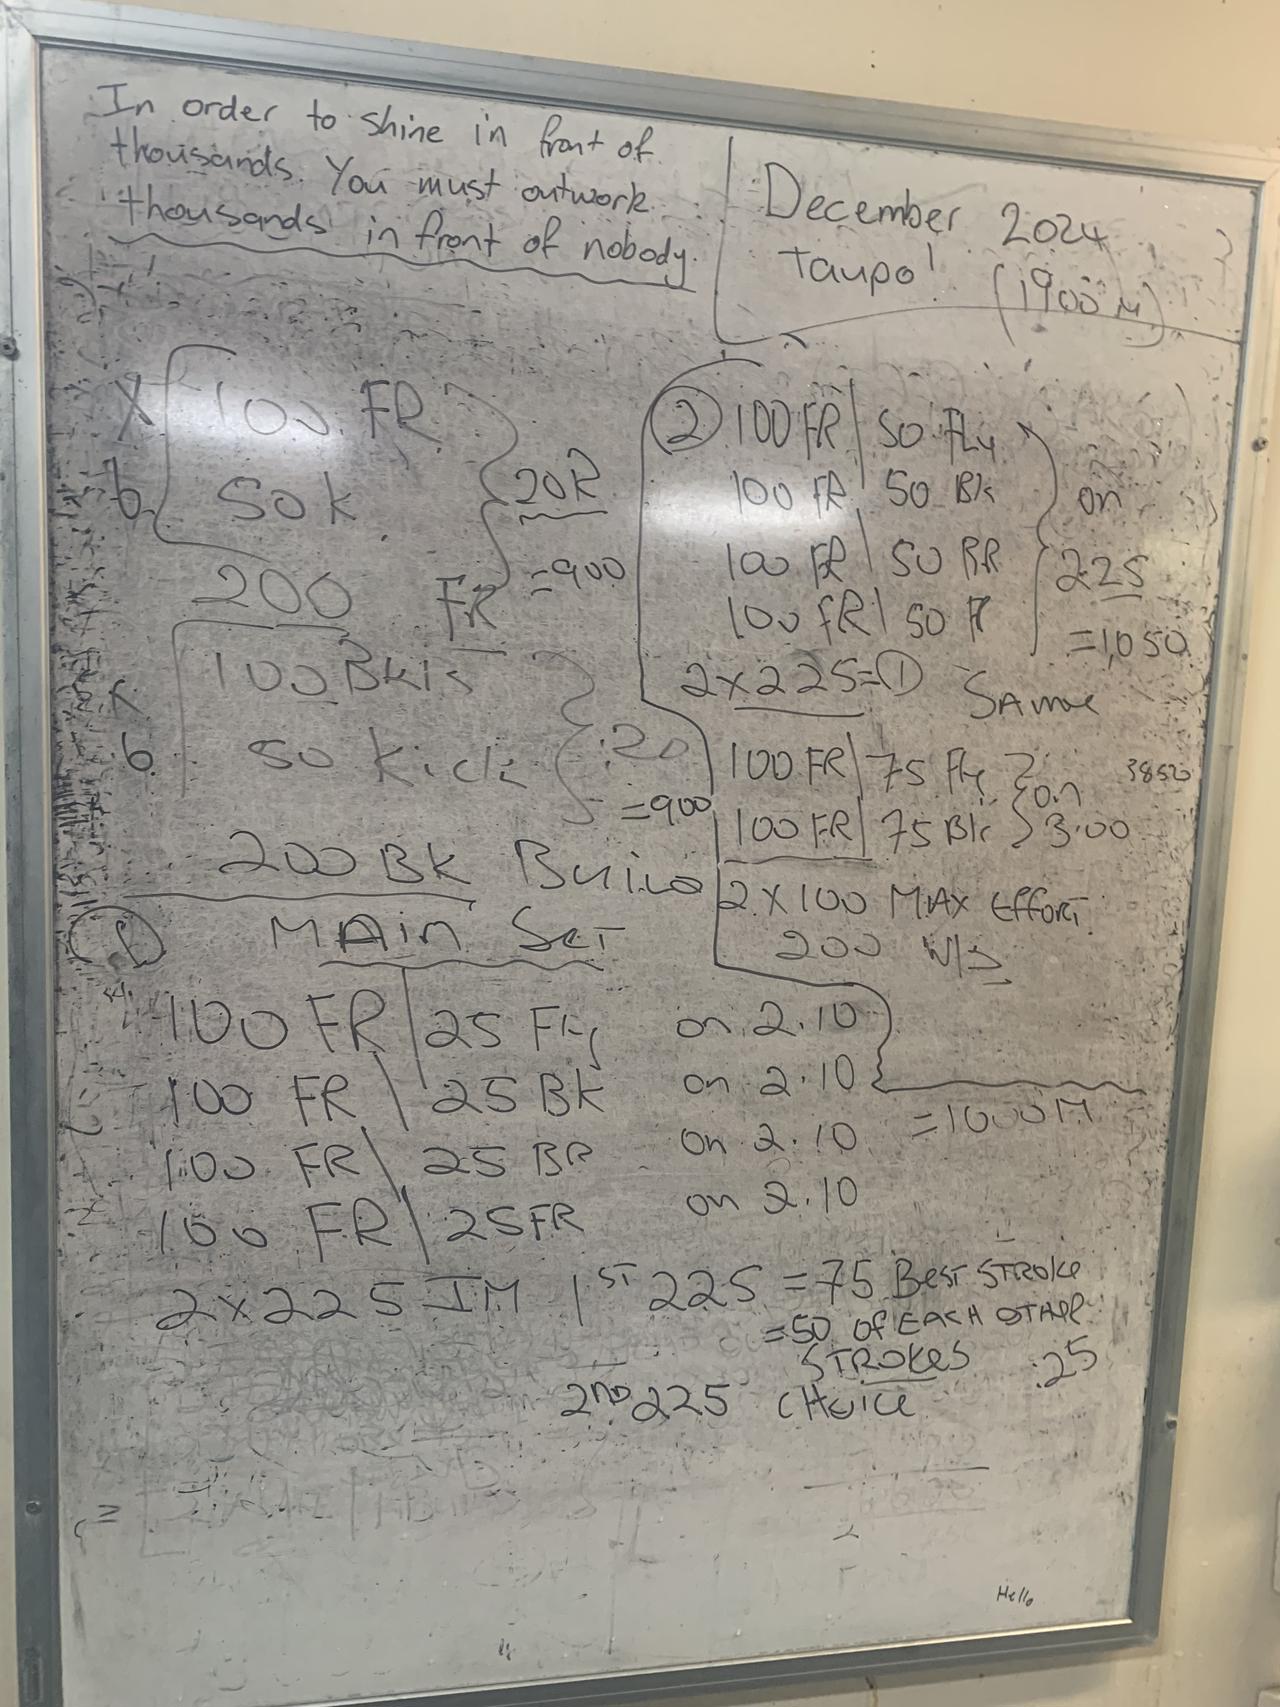 In order to shine in front of
thousands. You must outwork
thousands in front of nobody.
December 2024
Taupo!
(1900M)
X
6
100 FR
50 K
20R
=900
200 FR
6
50 Kick
:20
=900
200 BK Build
① MAin Set
100 FR | 25 Fly on 2.10
100 FR | 25 BK on 2.10
100 FR | 25 BR on 2.10
100 FR | 25 FR on 2.10
2x225 IM 1ST 225 = 75 BEST STROKE
=50 OF EACH OTHER
STROKES :25
2ND 225 CHOICE
② 100 FR | 50 Fly
100 FR | 50 Bk
100 FR | 50 BR
100 FR | 50 F
on
225
=1,050
2x225=① SAme
100 FR | 75 Fly
100 FR | 75 Bk
on
3.00
3850
2 x 100 MAX EFFORT
200 W/S
=1000M
Hello